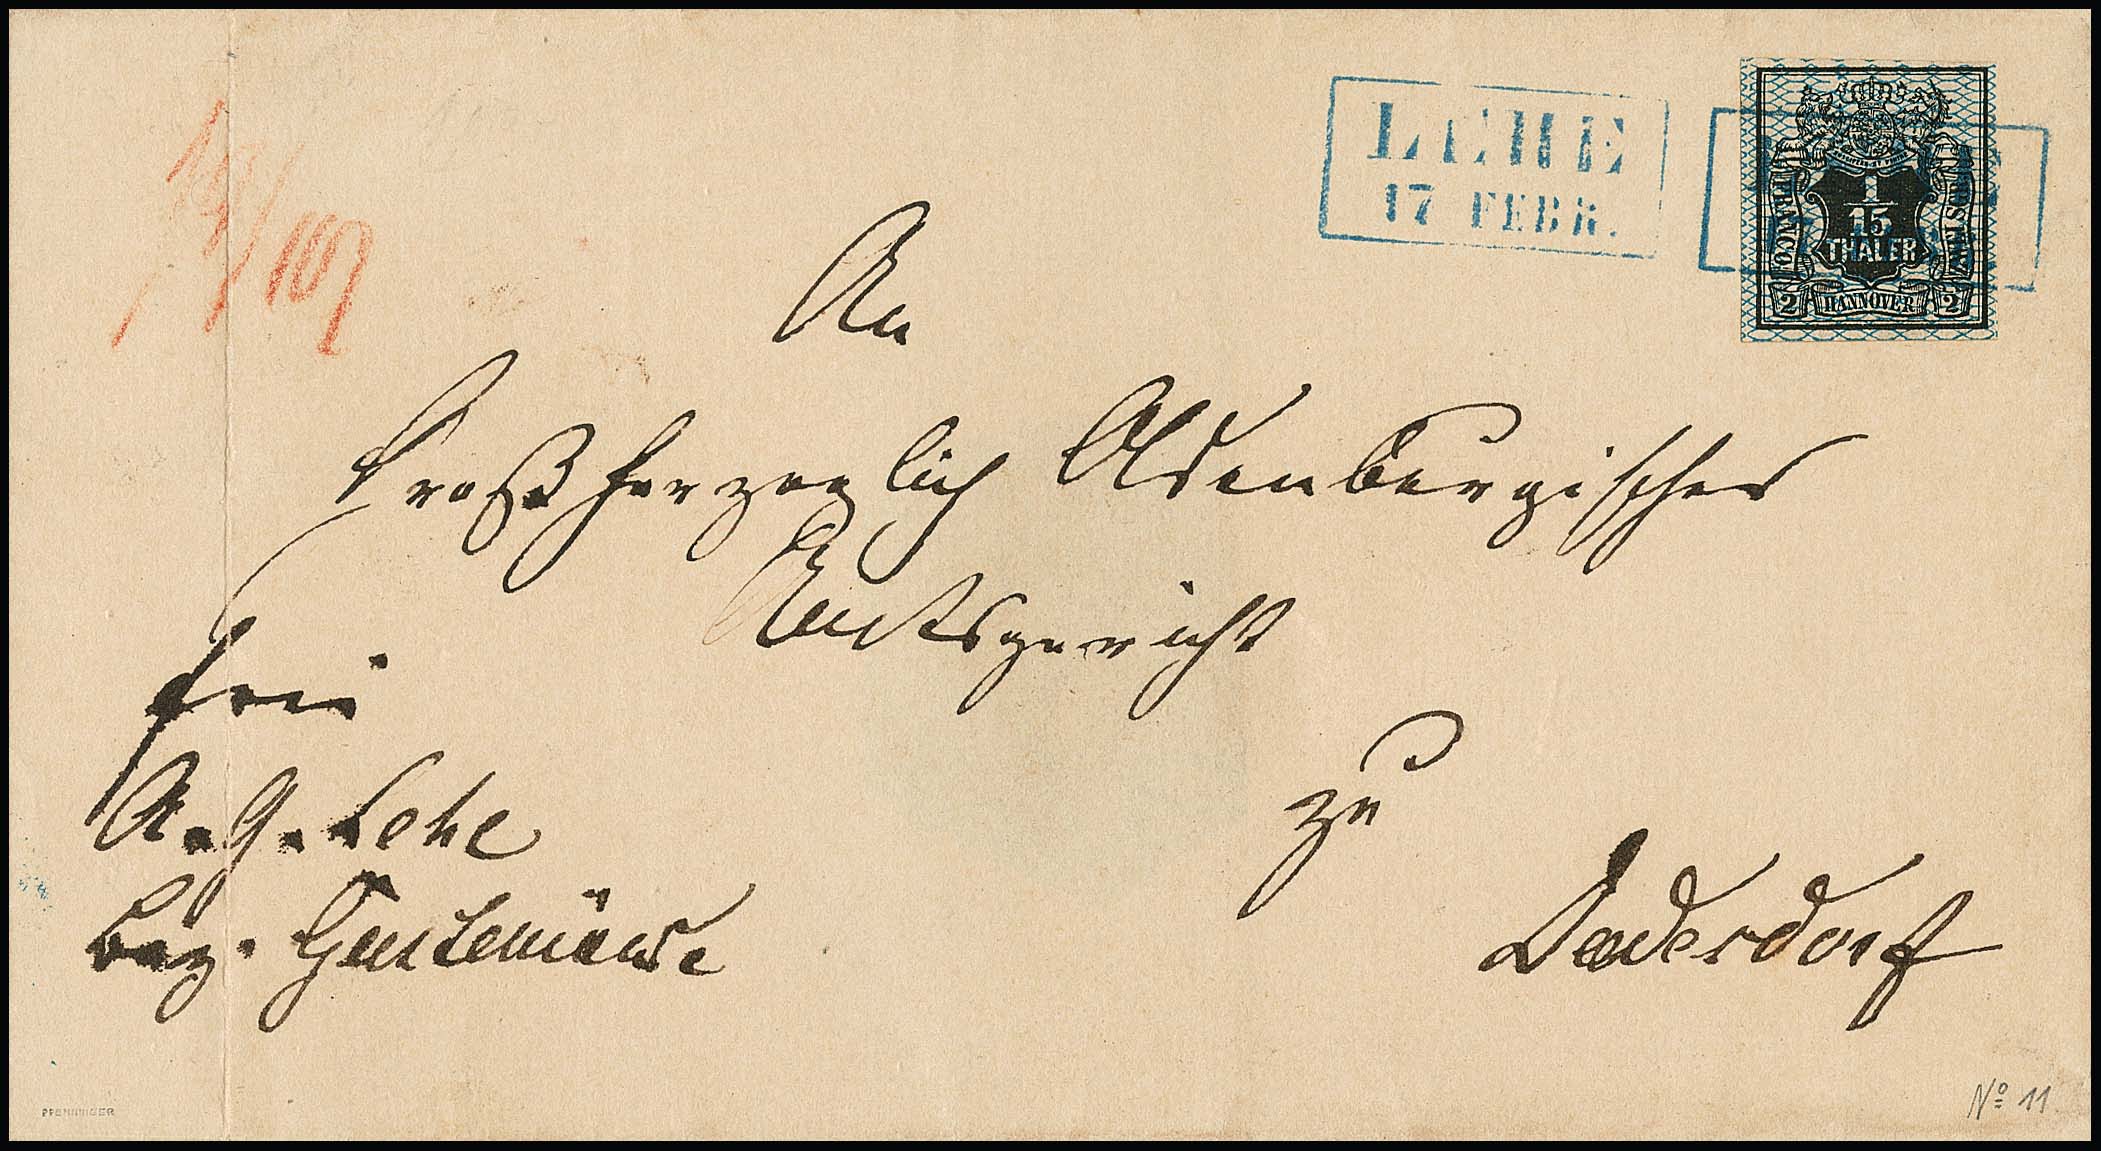 LEHE
17 FEBR.
FRANCO
1
15
THALER
2 HANNOVER 2
An
Großherzoglich Oldenburgisches
Amtsgericht
zu
Dedesdorf
frei
A. G. Lehe
Bez. Geestemünde
PFENNINGER
No 11